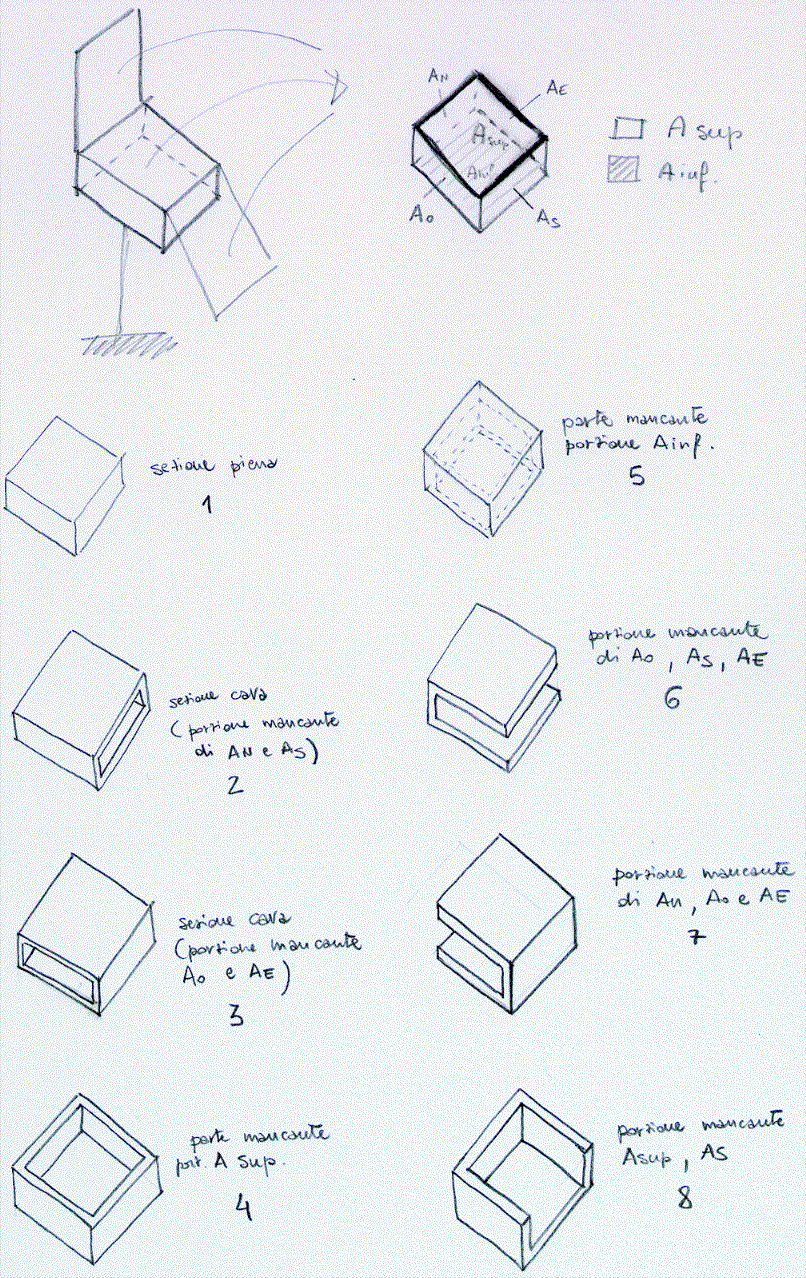 AN
AE
Asup
Ainf
AO
AS
A sup
A inf.
sezione piena
1
parte mancante
porzione A inf.
5
sezione cava
(porzione mancante
di AN e AS)
2
porzione mancante
di AO, AS, AE
6
sezione cava
(porzione mancante
AO e AE)
3
porzione mancante
di AN, AO e AE
7
parte mancante
por. A sup.
4
porzione mancante
Asup, AS
8